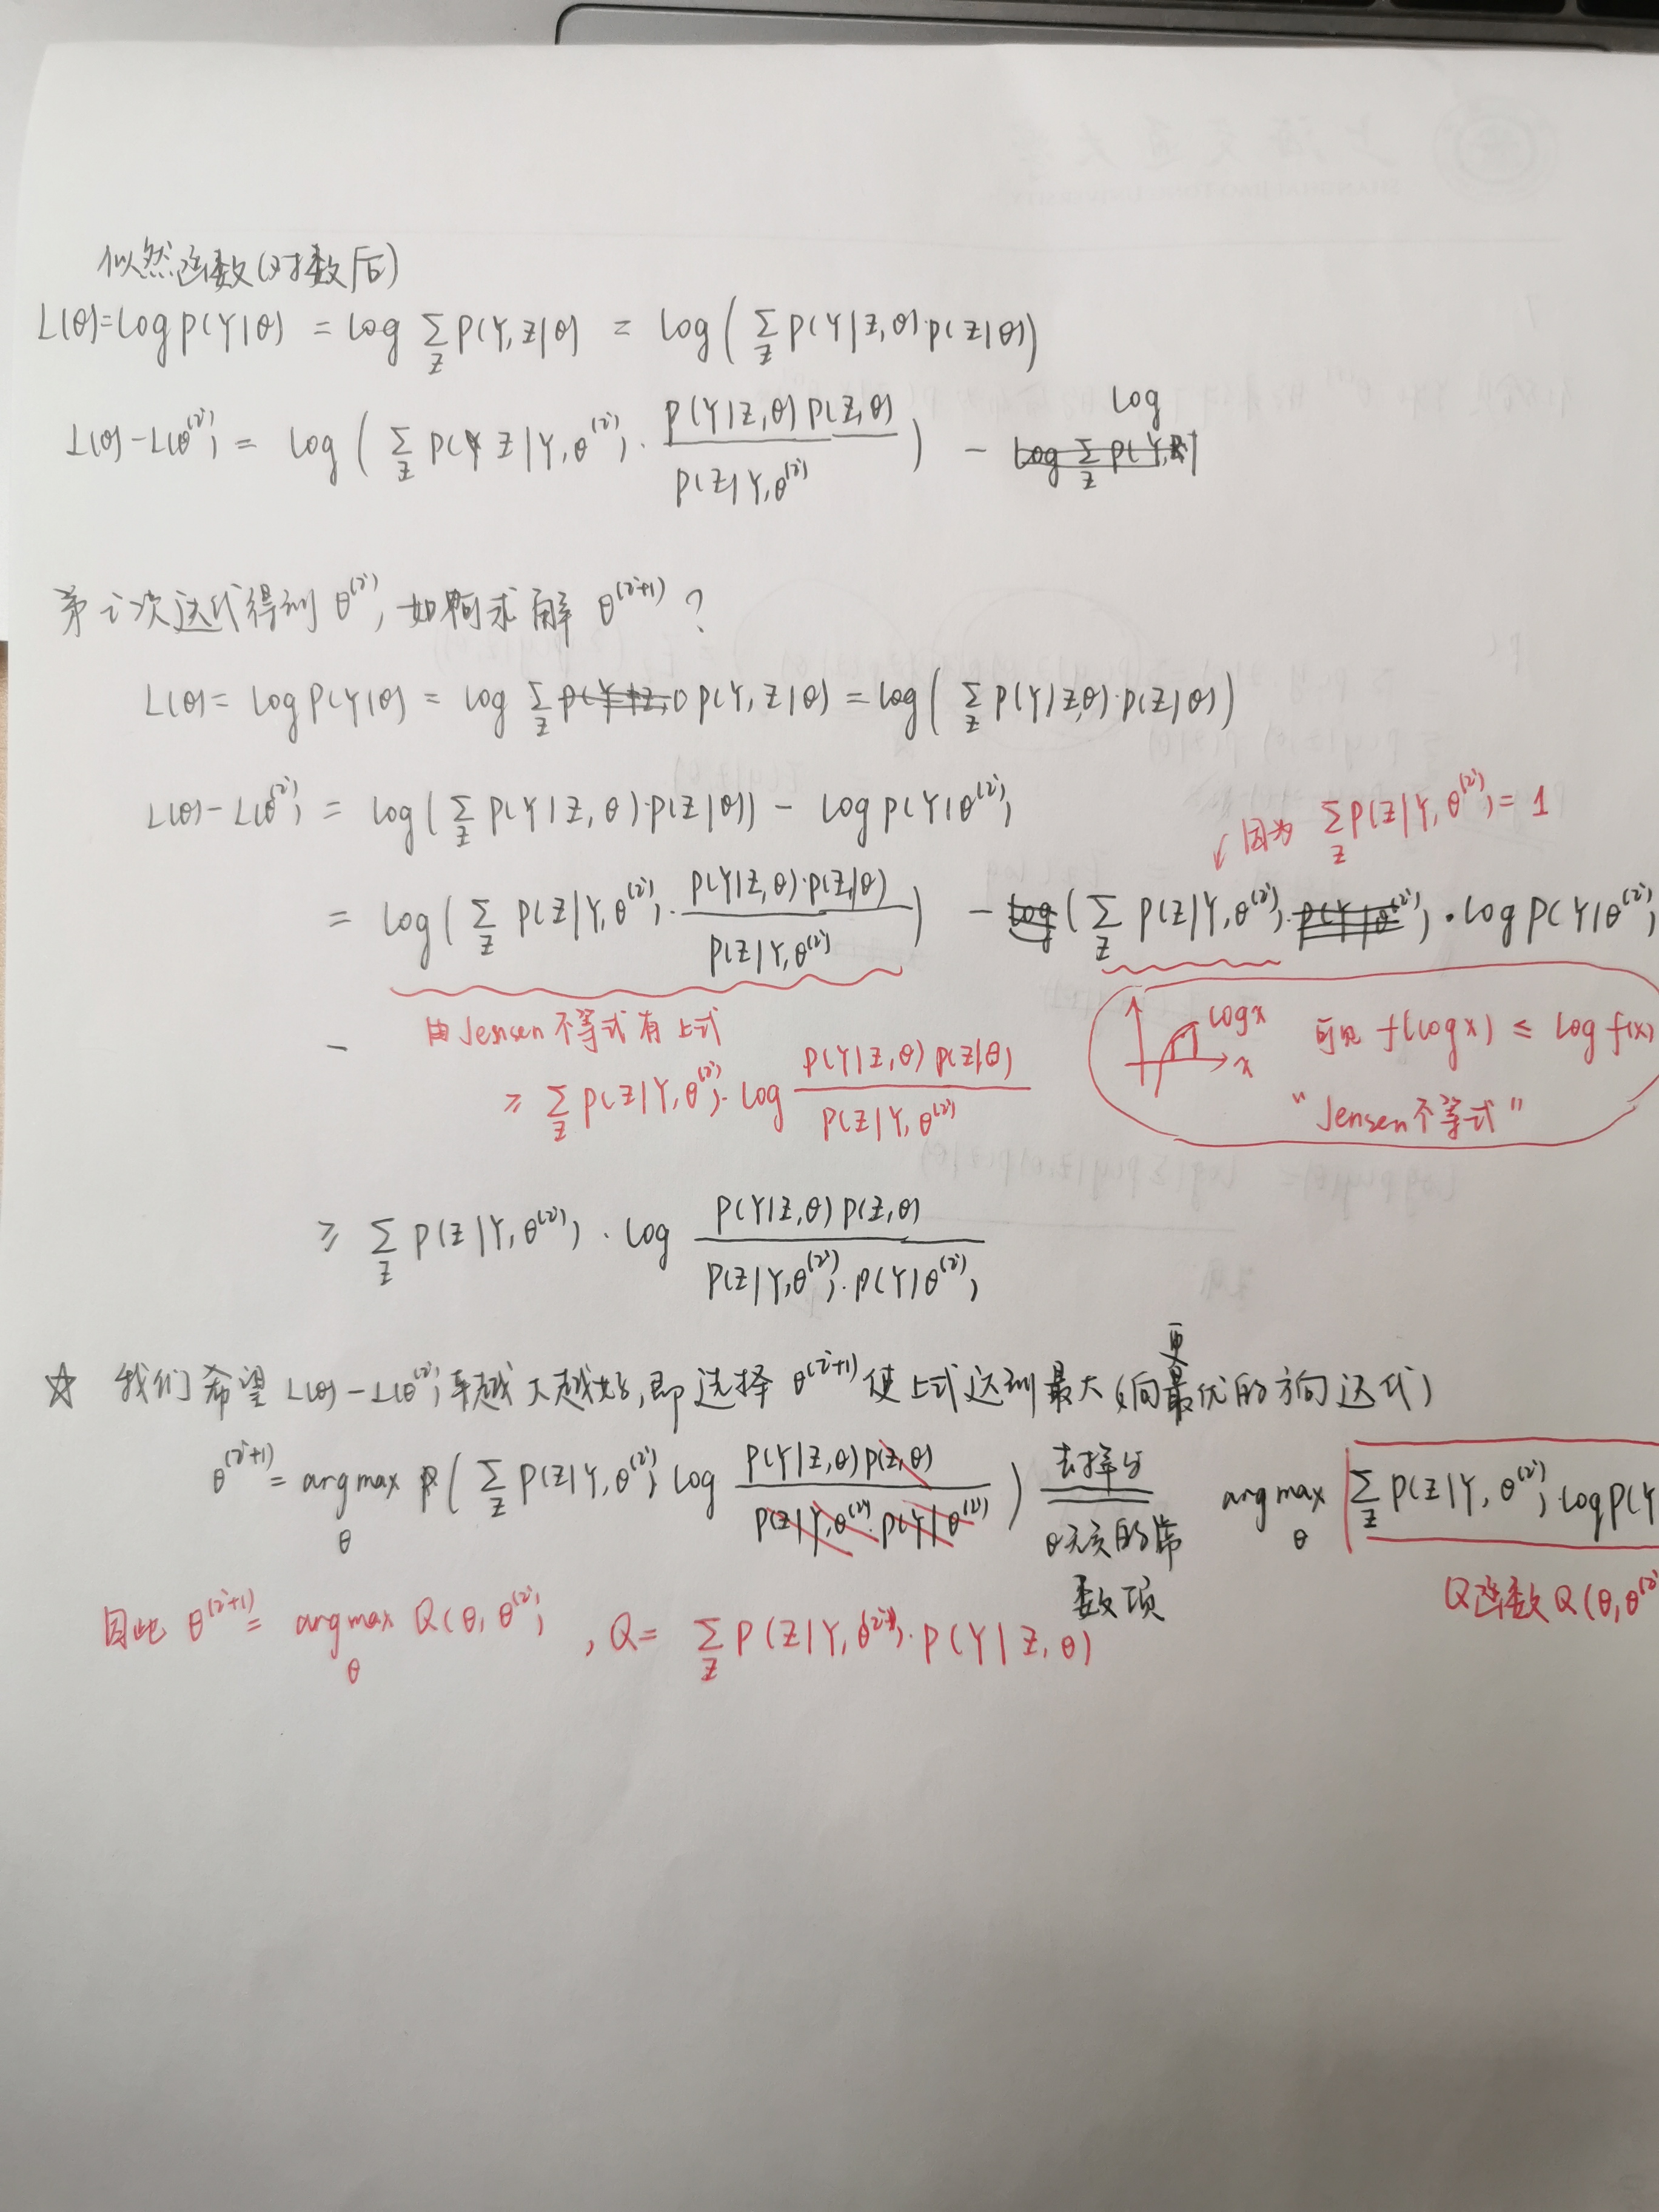 似然函数(对数后)
L(θ)=log P(Y|θ) = log ∑_Z P(Y,Z|θ) = log( ∑_Z P(Y|Z,θ)·P(Z|θ) )
L(θ)-L(θ^(i)) = log ( ∑_Z P(Z|Y,θ^(i))· P(Y|Z,θ)P(Z,θ) / P(Z|Y,θ^(i)) ) - log
第i次迭代得到 θ^(i), 如何求解 θ^(i+1) ?
L(θ)= log P(Y|θ) = log ∑_Z P(Y,Z|θ) = log( ∑_Z P(Y|Z,θ)·P(Z|θ) )
L(θ)-L(θ^(i)) = log( ∑_Z P(Y|Z,θ)·P(Z|θ)) - log P(Y|θ^(i))
↙因为 ∑_Z P(Z|Y,θ^(i)) = 1
= log( ∑_Z P(Z|Y,θ^(i))· P(Y|Z,θ)·P(Z|θ) / P(Z|Y,θ^(i)) ) - ( ∑_Z P(Z|Y,θ^(i)) )·log P(Y|θ^(i))
- 由Jensen不等式有上式
≥ ∑_Z P(Z|Y,θ^(i))·log P(Y|Z,θ)P(Z|θ) / P(Z|Y,θ^(i))
logx
x
可见 f(logx) ≤ log f(x)
"Jensen不等式"
≥ ∑_Z P(Z|Y,θ^(i)) · log P(Y|Z,θ)P(Z,θ) / P(Z|Y,θ^(i))·P(Y|θ^(i))
☆ 我们希望 L(θ)-L(θ^(i)) 越大越好,即选择 θ^(i+1) 使上式达到最大(向更优的方向迭代)
θ^(i+1) = argmax_θ ( ∑_Z P(Z|Y,θ^(i)) log P(Y|Z,θ)P(Z,θ) / P(Z|Y,θ^(i))·P(Y|θ^(i)) ) 去掉与θ无关的常数项 argmax_θ ∑_Z P(Z|Y,θ^(i))·log P(Y
Q函数 Q(θ,θ^(i)
因此 θ^(i+1) = argmax_θ Q(θ,θ^(i)) , Q= ∑_Z P(Z|Y,θ^(i))·P(Y|Z,θ)